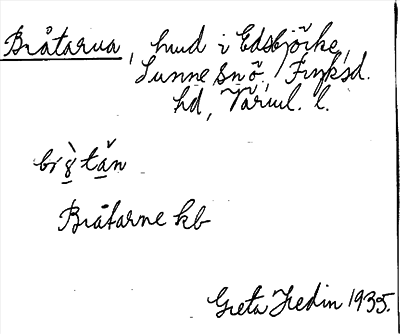 Bråtarna, hmd i Edsbjörke,
Sunne snö, Fryksd.
hd, Värml. l.
bròtăn
Bråtarne kb
Greta Hedin 1935.